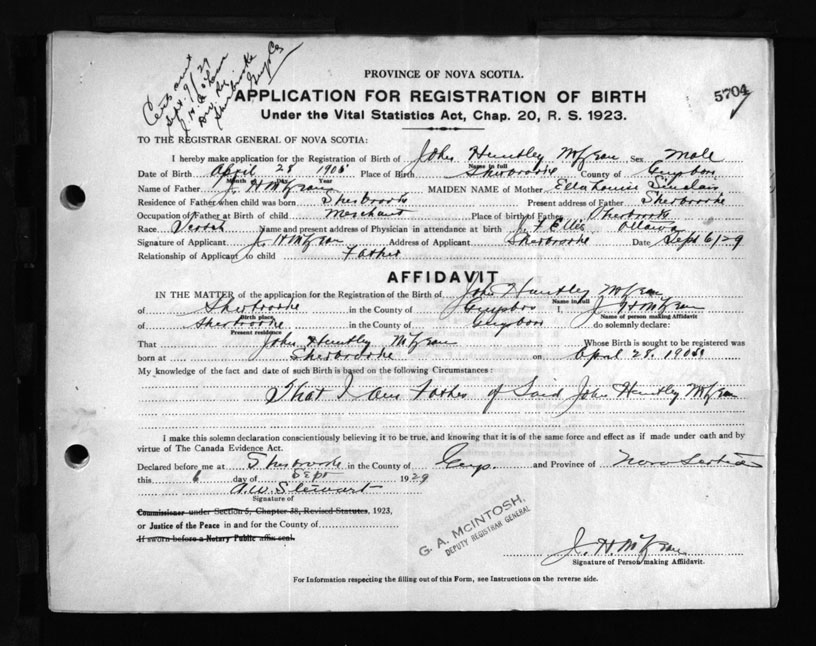 Sept. 9/29
Sherbrooke
Guys Co
PROVINCE OF NOVA SCOTIA.
APPLICATION FOR REGISTRATION OF BIRTH
5704
Under the Vital Statistics Act, Chap. 20, R. S. 1923.
TO THE REGISTRAR GENERAL OF NOVA SCOTIA:
I hereby make application for the Registration of Birth of John Huntley Sex Male
Name in full
Date of Birth April 28 Place of Birth Sherbrooke County of Guysboro
Month Day Year
Name of Father MAIDEN NAME of Mother Ella Louise Sinclair
Residence of Father when child was born Sherbrooke Present address of Father Sherbrooke
Occupation of Father at Birth of child Merchant Place of birth of Father Sherbrooke
Race Scotch Name and present address of Physician in attendance at birth Ellis Ottawa
Signature of Applicant Address of Applicant Sherbrooke Date Sept 6/29
Relationship of Applicant to child Father
AFFIDAVIT
IN THE MATTER of the application for the Registration of the Birth of John Huntley
Name in full
of Sherbrooke in the County of Guysboro I,
Birth place
Name of person making Affidavit
of Sherbrooke in the County of Guysboro do solemnly declare:
Present residence
That John Huntley Whose Birth is sought to be registered was
born at Sherbrooke on April 28,
My knowledge of the fact and date of such Birth is based on the following Circumstances:
That I am Father of Said John Huntley
I make this solemn declaration conscientiously believing it to be true, and knowing that it is of the same force and effect as if made under oath and by
virtue of The Canada Evidence Act.
Declared before me at Sherbrooke in the County of Guys. and Province of Nova Scotia
this 6 day of Sept 1929
A.W. Stewart
Signature of
Commissioner under Section 5, Chapter 38, Revised Statutes, 1923,
or Justice of the Peace in and for the County of
If sworn before a Notary Public affix seal.
G. A. McINTOSH,
DEPUTY REGISTRAR GENERAL
Signature of Person making Affidavit.
For Information respecting the filling out of this Form, see Instructions on the reverse side.